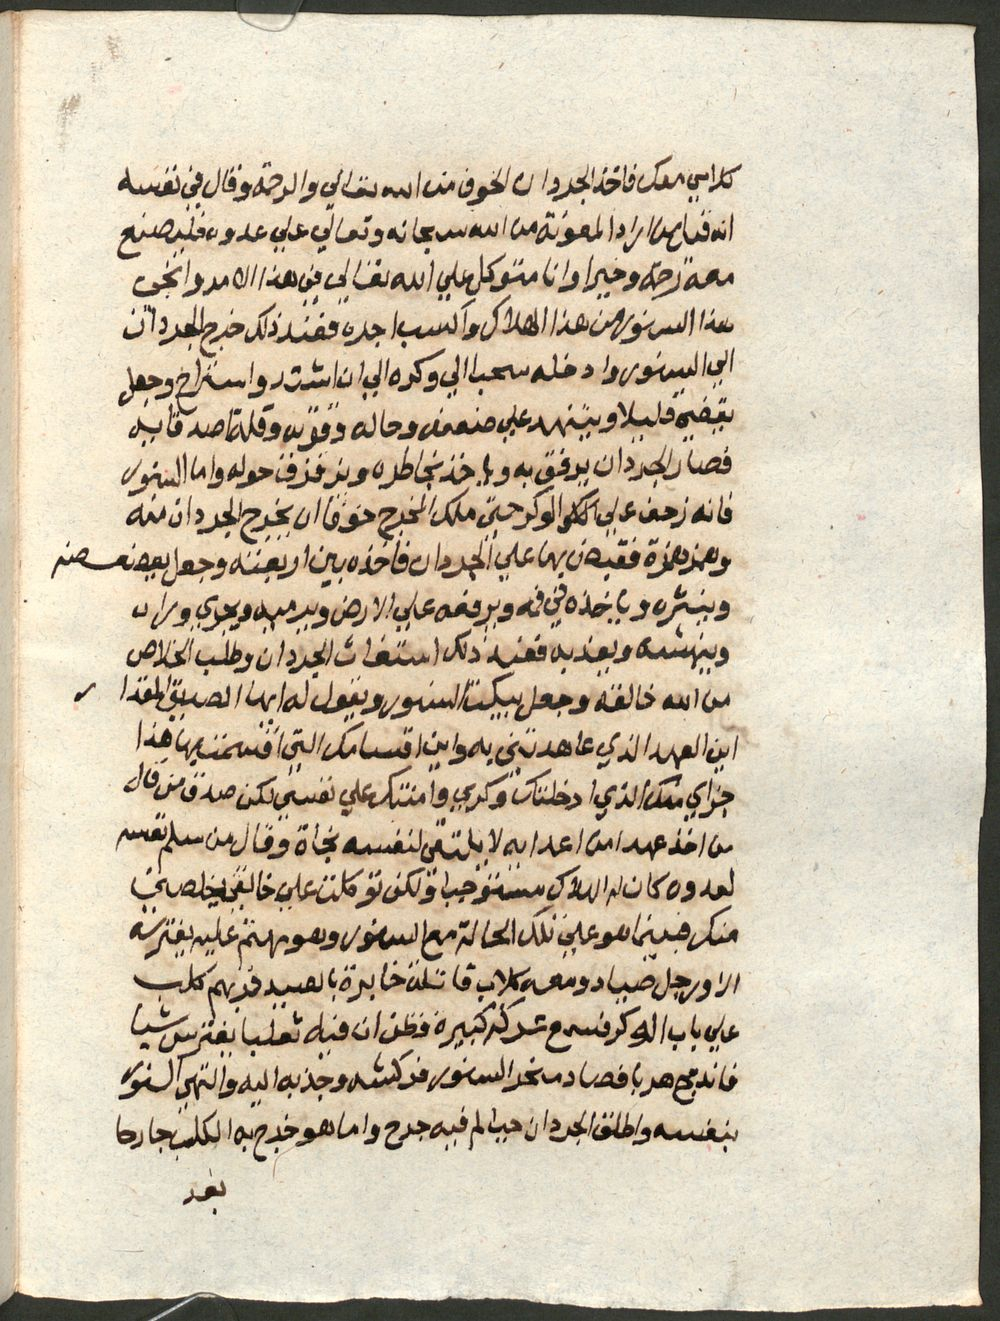 كلامي معك فاخذ الجردان الخوف من الله تعالي والرحمة وقال في نفسه
انه قيل من اراد المعونة من الله سبحانه وتعالي علي عدوه فليصنع
معه رحمة وخيرا وانا متوكل علي الله تعالي في هذا الامر وانجي
هذا السنور من هذا الهلاك واكسب اجره فعند ذلك خرج الجردان
الي السنور وادخله سحبا الي وكره الي ان اشتد واستراح وجعل
قليلا ويتنهد علي ضعفه وحاله وقوته وقلة اصدقايه
فصار الجردان يرفق به وياخذ بخاطره ويزفزف حوله واما السنور
فانه زحف علي الوكر حتي ملك المخرج خوفا ان يخرج الجردان منه
وهمز همزة فقبض بها علي الجردان فاخذه بين اربعته وجعل يعضعضه
وينشره وياخذه في فمه ويرفعه علي الارض ويرميه ويجري وراه
وينهشه ويعذبه فعند ذلك استغاث الجردان وطلب الخلاص
من الله خالقه وجعل يبكت السنور ويقول له ايها الصديق الغدار
اين العهد الذي عاهدتني به واين اقسامك التي اقسمت بها هذا
جزاي منك الذي ادخلتك وكري وامنتك علي نفسي لكن صدق من قال
من اخذ عهدا من اعدايه لا يلتقي لنفسه نجاة وقال من سلم نفسه
لعدوه كان له الهلاك مستوجبا ولكن توكلت علي خالقي يخلصني
منك فبينما هو علي تلك الحالة مع السنور وهو يهتم عليه يفترسه
الا ورجل صياد ومعه كلاب قاتلة خابرة بالصيد فمر بهم كلب
علي باب الوكر فسمع عركة كبيرة فظن ان فيه ثعلبا يفترس شيا
فاندمج هربا فصادمه نحر السنور فركشه وجذبه اليه والتهي السنور
بنفسه واطلق الجردان حيا لم فيه جرح واما هو خرج به الكلب جارحا
بعد